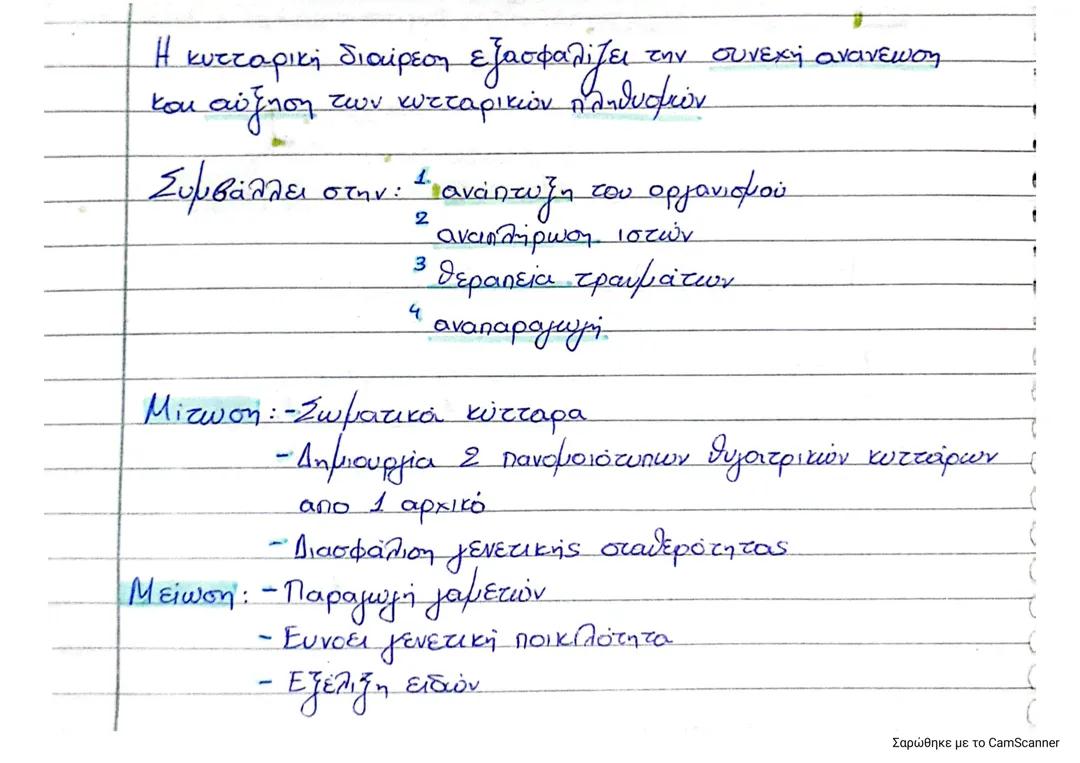 Η κυτταρική διαίρεση εξασφαλίζει την συνεχή ανανεωση
και αύξηση των κυτταρικών πληθυσμών
Συμβάλλει στην: 1 ανάπτυξη του οργανισμού
2 αναπλήρωση ιστών
3 θεραπεία τραυμάτων
4 αναπαραγωγή
Μίτωση: - Σωματικά κύτταρα
- Δημιουργία 2 πανομοιότυπων θυγατρικών κυττάρων
απο 1 αρχικό
- Διασφάλιση γενετικής σταθερότητας
Μείωση: - Παραγωγή γαμετών
- Ευνοεί γενετική ποικιλότητα
- Εξέλιξη ειδών
Σαρώθηκε με το CamScanner